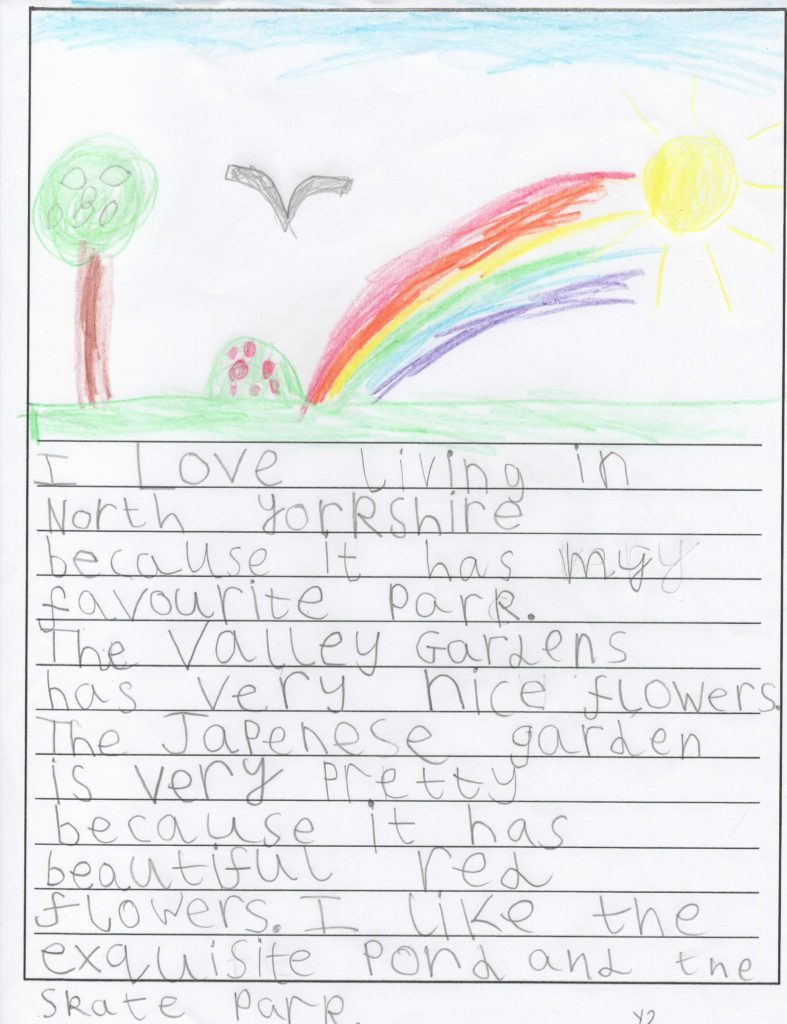 I Love living in
North Yorkshire
because it has my
favourite park.
The Valley Gardens
has very nice flowers.
The Japenese garden
is very pretty
because it has
beautiful red
flowers. I like the
exquisite pond and the
skate park.
Y2